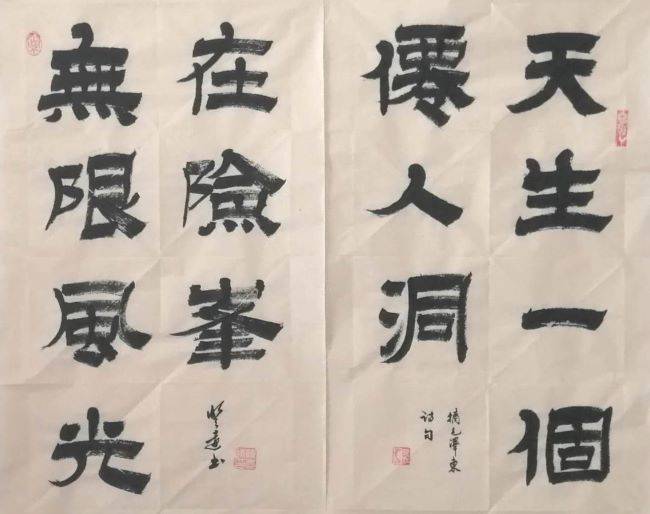 天生一個
僊人洞
摘毛澤東
诗句
無限風光
在險峯
书